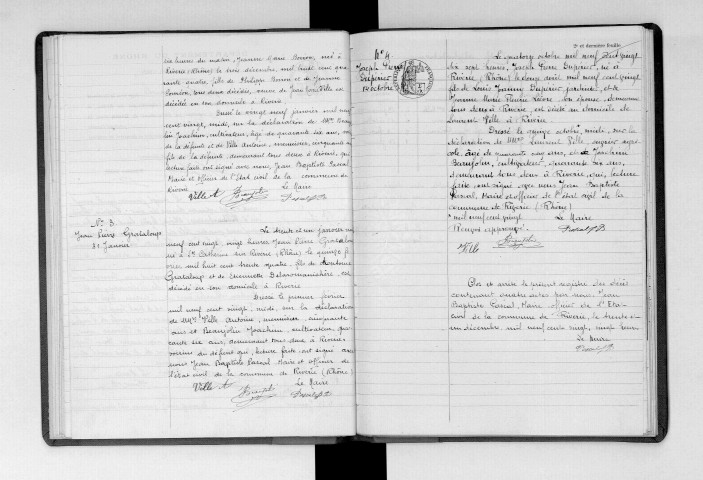 six heures du matin, Jeanne Marie Bonon, née à
Riverie (Rhône) le trois décembre, mil huit cent qua
rante quatre, fille de Philippe Bonon et de Jeanne
tous deux décédés, veuve de Jean Ville est
décédée en son domicile à Riverie
Dressé le vingt neuf janvier mil neuf
cent vingt, midi, sur la déclaration de MMrs Beau
jolin Joachim, cultivateur, âgé de quarante six ans,
de la défunte et de Ville Antoine, menuisier, cinquante
fils de la défunte, demeurant tous deux à Riverie, qui
lecture faite ont signé avec nous, Jean Baptiste Pascal
Maire et officier de l'état civil de la commune de
Riverie
Ville A Le Maire
N° 3
Jean Pierre Grataloup
31 Janvier
Le trente et un janvier mil
neuf cent vingt, vingt heures Jean Pierre Grataloup
né à Ste Catherine sur Riverie (Rhône) le quinze
mil huit cent trente quatre, fils de
Grataloup et de Etiennette est
décédé en son domicile à Riverie
Dressé le premier février
mil neuf cent vingt, midi, sur la déclaration
de MMrs Ville Antoine, menuisier, cinquante
ans et Beaujolin Joachim, cultivateur, qua
rante six ans, demeurant tous deux à Riverie
voisins du défunt qui, lecture faite ont signé avec
nous Jean Baptiste Pascal Maire et officier de
l'état civil de la commune de Riverie (Rhône)
Ville A Le Maire
Pascal J B
2e et dernière feuille
N° 4
Joseph Pierre
Dupérier
14 octobre
Le quatorze octobre mil neuf cent vingt
dix sept heures, Joseph Pierre Dupérier, né à
Riverie (Rhône) le douze août, mil neuf cent vingt
fils de Louis Dupérier, et de
Jeanne Marie son épouse, demeurant
tous deux à Riverie, est décédé au domicile de
Laurent Ville à Riverie
Dressé le quinze octobre, midi, sur la
déclaration de MMrs Laurent Ville,
âgé de ans, et de Joachim
Beaujolin, cultivateur, quarante six ans,
demeurant tous deux à Riverie qui, lecture
faite, ont signé avec nous Jean Baptiste
Pascal, Maire et officier de l'état civil de la
commune de Riverie (Rhône)
mil neuf cent vingt Le Maire
Rayés approuvé Pascal J B
Ville
Clos et arrêté le présent registre des décès
contenant quatre actes par nous, Jean
Baptiste Pascal, Maire, officier de l'Etat
Civil de la commune de Riverie, le trente et
un décembre, mil neuf cent vingt,
Le Maire
Pascal J B